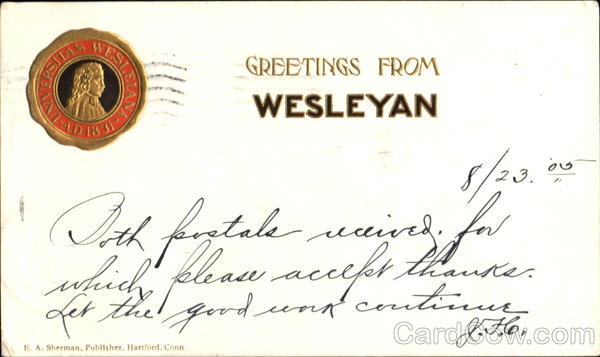 UNIVERSITAS WESLEIANA
A·D 1831
GREETINGS FROM
WESLEYAN
8/23. '05
Both postals received. for
which please accept thanks.
Let the good work continue
E. A. Sherman, Publisher, Hartford, Conn.
CardCow.com